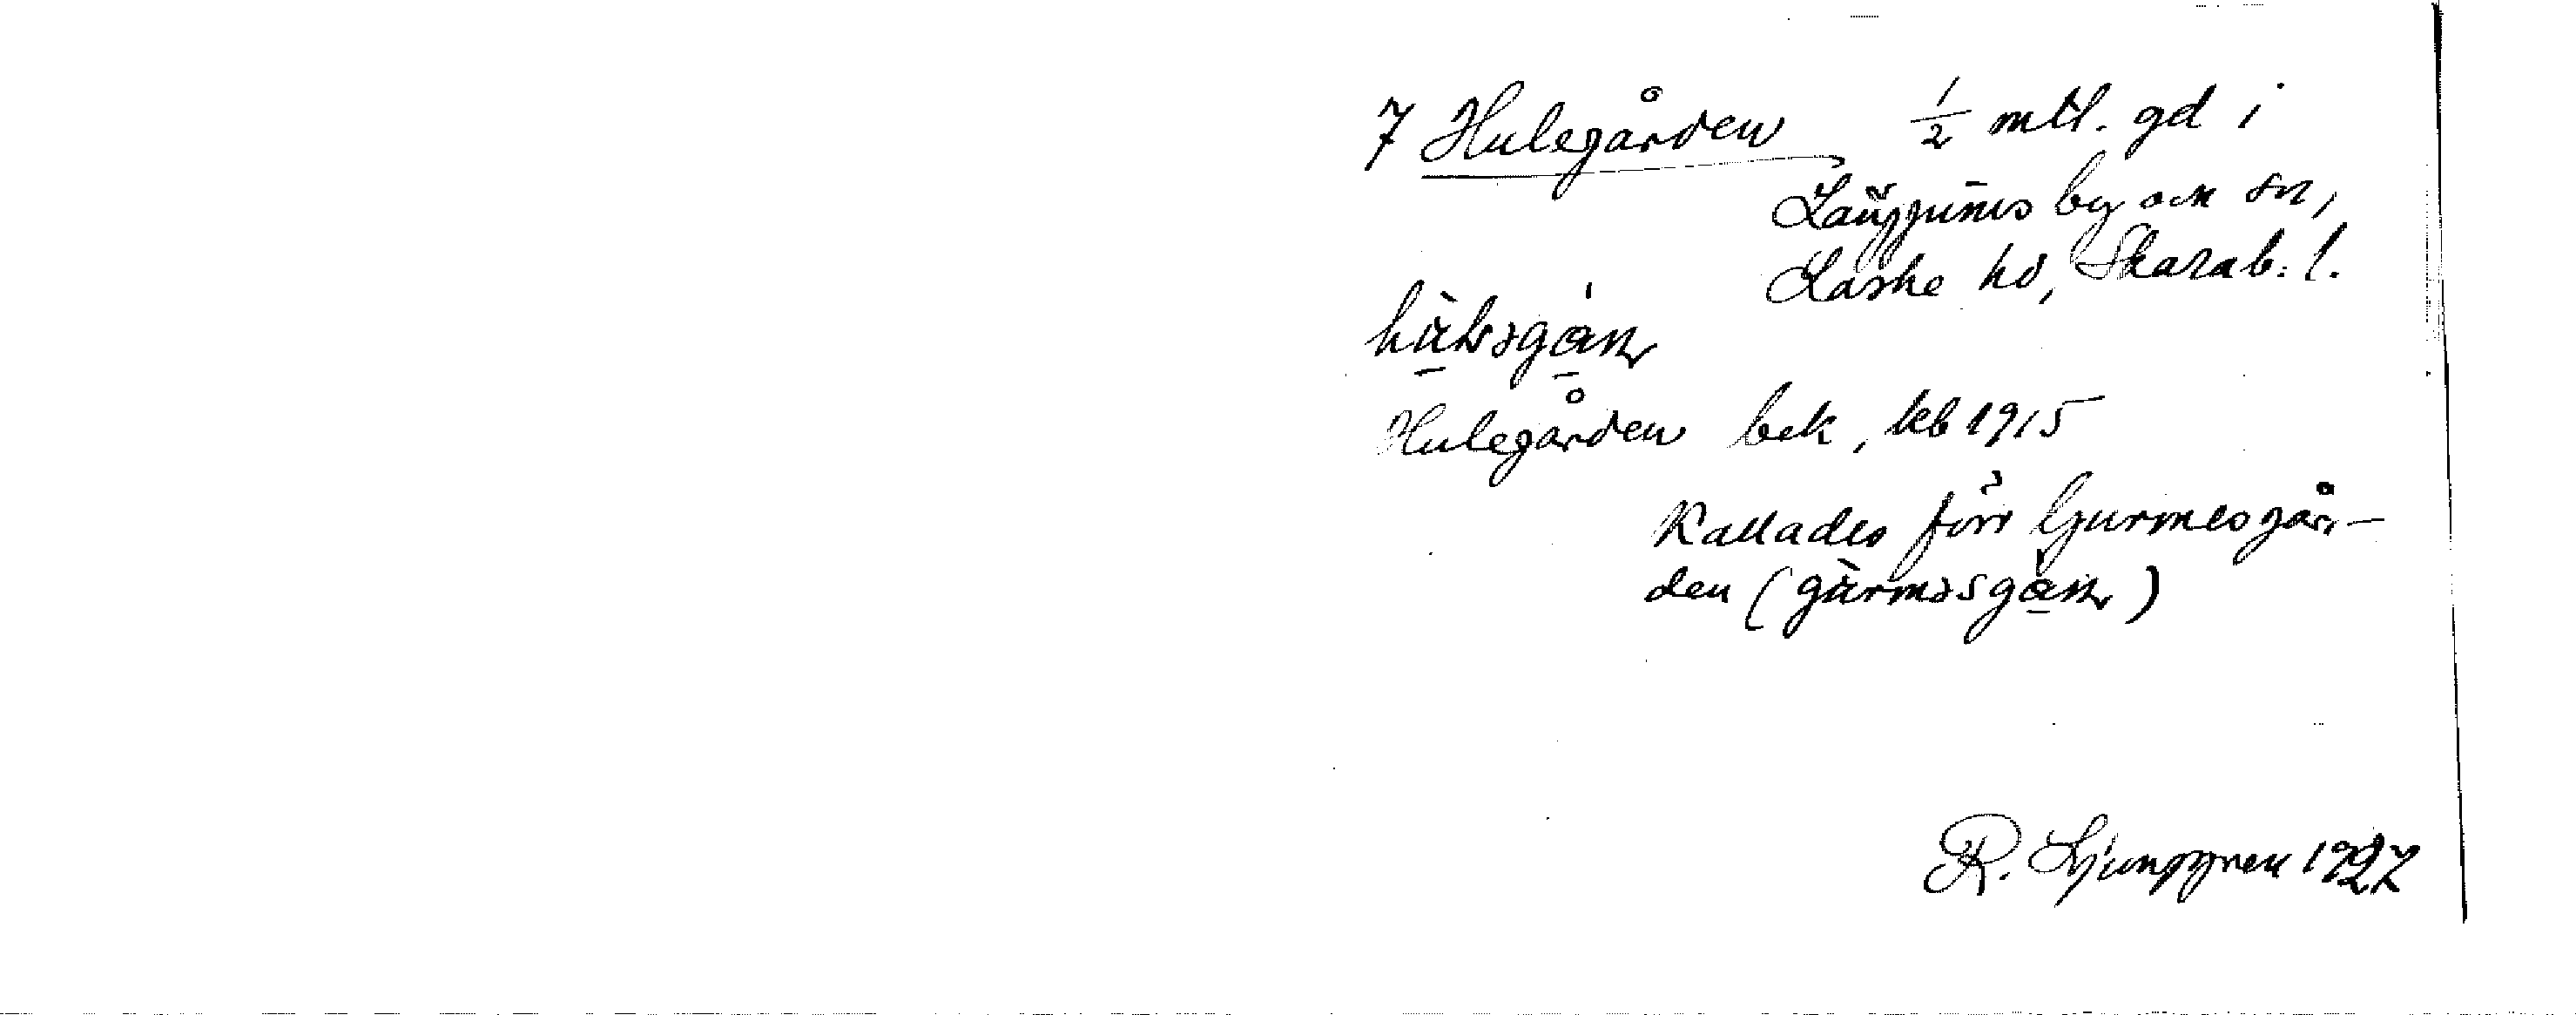 7 Hulegården 1/2 mtl. gd i
Längjums by ock sn,
Laske hd, Skarab. l.
Hulegården bek, kb 1915
Kallades förr Gurmesgår-
den (gùrməsgàɳ)
R. Ljunggren 1927